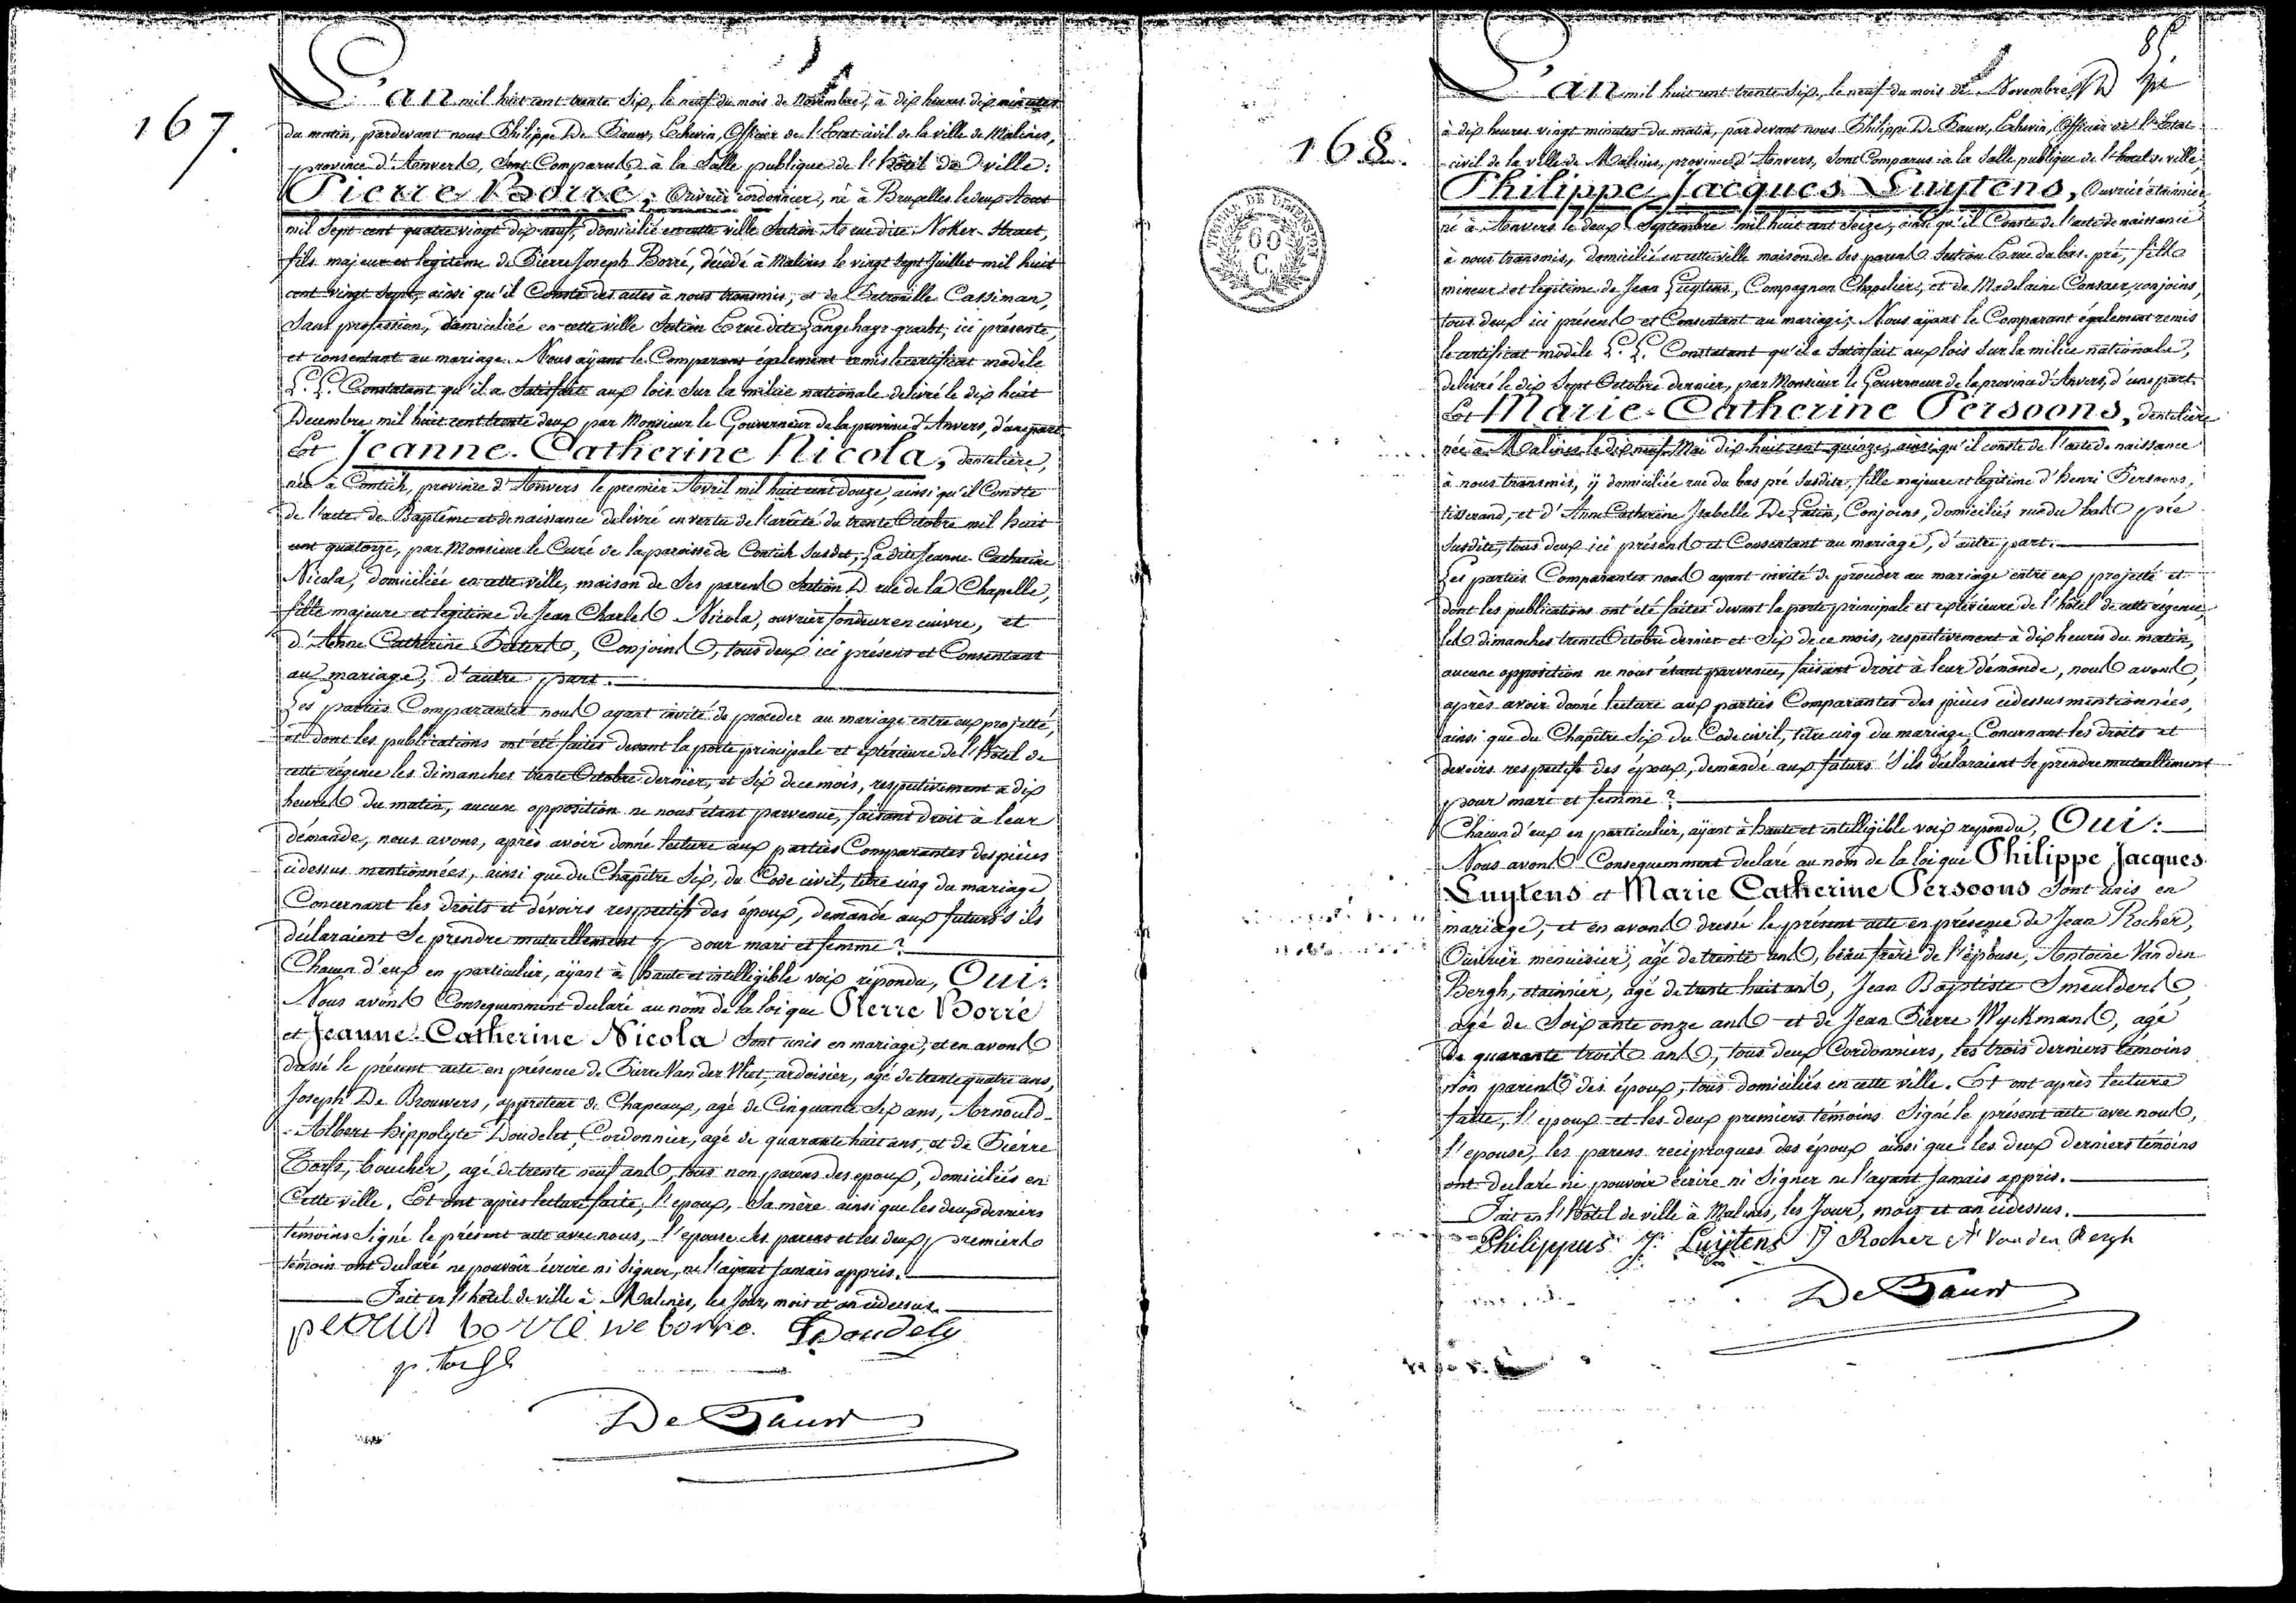 167.
L'an mil huit cent trente Six, le neuf du mois de Novembre, à dix heures dix minutes
du matin, pardevant nous Philippe De Bauw, Echevin, Officier de l'Etat civil de la ville de Malines,
province d'Anvers, Sont Comparus à la Salle publique de l'hôtel de ville:
Pierre Borré, Ouvrier cordonnier, né à Bruxelles le deux Aout
mil Sept cent quatre vingt dix neuf, domicilié en cette ville Section A rue dite Noker-Straet,
fils majeur et legitime de Pierre Joseph Borré, décédé à Malines le vingt Sept Juillet mil huit
cent vingt Sept, ainsi qu'il Conste des actes à nous transmis, et de Petronille Cassiman,
Sans profession, domiciliée en cette ville Section C rue dite Langehays-gracht, ici présente,
et consentant au mariage. Nous ayant le Comparant également remis le certificat modèle
L. L. Constatant qu'il a Satisfaite aux lois Sur la milice nationale delivré le dix huit
Decembre mil huit cent trente deux par Monsieur le Gouverneur de la province d'Anvers, d'une part
Et Jeanne-Catherine Nicola, dentelière,
née à Contich, province d'Anvers le premier Avril mil huit cent douze, ainsi qu'il Conste
de l'acte de Baptême et de naissance delivré en vertu de l'arrêté du trente Octobre mil huit
cent quatorze, par Monsieur le Curé de la paroisse de Contich Susdit, La dite Jeanne Catherine
Nicola, domiciliée en cette ville, maison de Ses parens Section D rue de la Chapelle,
fille majeure et legitime de Jean Charles Nicola, ouvrier fondeur en cuivre, et
d'Anne Catherine Peeters, Conjoins, tous deux ici présens et Consentant
au mariage, d'autre part.
Les parties Comparantes nous ayant invité de proceder au mariage entre eux projetté,
et dont les publications ont été faites devant la porte principale et extérieure de l'hôtel de
cette régence les dimanches trente Octobre dernier, et Six de ce mois, respectivement à dix
heures du matin, aucune opposition ne nous étant parvenue, faisant droit à leur
démande, nous avons, après avoir donné lecture aux parties Comparantes des pièces
cidessus mentionnées, ainsi que du Chapitre Six, du Code civil, titre cinq du mariage
Concernant les droits et dévoirs respectifs des époux, demandé aux futurs s'ils
déclaraient Se prendre mutuellement pour mari et femme?
Chacun d'eux en particulier, ayant à haute et intelligible voix répondu, Oui:
Nous avons Consequemment declaré au nom de la loi que Pierre Borré
et Jeanne-Catherine Nicola Sont unis en mariage, et en avons
dressé le présent acte en présence de Pierre Van der Vliet, ardoisier, agé de trente quatre ans,
Joseph De Brouwers, appreteur de Chapeaux, agé de Cinquante Six ans, Arnould-
Albert hippolyte Doudelet, Cordonnier, agé de quarante huit ans, et de Pierre
Torfs, boucher, agé de trente neuf ans, tous non parens des epoux, domiciliés en
Cette ville. Et ont après lecture faite, l'epoux, Sa mère ainsi que les deux derniers
témoins Signé le présent acte avec nous, l'epouse Ses parens et les deux premiers
témoin ont declaré ne pouvoir écrire ni Signer, ne l'ayant Jamais appris.
Fait en l'hôtel de ville à Malines, les Jour, mois et an cidessus.
petrus borre we borre. Doudely
p. torfs
De Bauw
85
168.
TIMBRE DE DIMENSION
60
C.
L'an mil huit cent trente Six, le neuf du mois de Novembre
à dix heures vingt minutes du matin, par devant nous Philippe De Bauw, Echevin, Officier de l'Etat
civil de la ville de Malines, province d'Anvers, Sont Comparus à la Salle publique de l'hotel de ville
Philippe Jacques Luytens, Ouvrier étainnier,
né à Anvers le deux Septembre mil huit cent Seize, ainsi qu'il Conste de l'acte de naissance
à nous transmis, domicilié en cette ville maison de Ses parens Section C rue du bas pré, fils
mineur et legitime de Jean Luytens, Compagnon Chapelier, et de Madelaine Cansaer, conjoins,
tous deux ici présens et Consentant au mariage. Nous ayant le Comparant également remis
le certificat modèle L. L. Constatant qu'il a Satisfait aux lois Sur la milice nationale,
delivré le dix Sept Octobre dernier, par Monsieur le Gouverneur de la province d'Anvers, d'une part.
Et Marie-Catherine Persoons, dentelière
née à Malines le dix neuf Mai dix huit cent quinze, ainsi qu'il conste de l'acte de naissance
à nous transmis, y domiciliée rue du bas pré Susdite, fille majeure et legitime d'henri Persoons,
tisserand, et d'Anne Catherine Isabelle De Latin, Conjoins, domiciliés rue du bas pré
Susdite, tous deux ici présens et Consentant au mariage, d'autre part.
Les parties Comparantes nous ayant invité de proceder au mariage entre eux projetté et
dont les publications ont été faites devant la porte principale et extérieure de l'hôtel de cette régence,
les dimanches trente Octobre dernier et Six de ce mois, respectivement à dix heures du matin,
aucune opposition ne nous étant parvenue, faisant droit à leur démande, nous avons,
après avoir donné lecture aux parties Comparantes des pièces cidessus mentionnées,
ainsi que du Chapitre Six du Code civil, titre cinq du mariage Concernant les droits et
devoirs respectifs des époux, demandé aux futurs S'ils déclaraient Se prendre mutuellement
pour mari et femme?
Chacun d'eux en particulier, ayant à haute et intelligible voix repondu, Oui:
Nous avons Consequemment declaré au nom de la loi que Philippe Jacques
Luytens et Marie Catherine Persoons Sont unis en
mariage, et en avons dressé le présent acte en présence de Jean Rocher,
Ouvrier menuisier, agé de trente ans, béau frère de l'épouse, Antoine Van den
Bergh, étainnier, agé de trente huit ans, Jean Baptiste Smeulders,
agé de Soixante onze ans et de Jean Pierre Wyckmans, agé
de quarante trois ans, tous deux Cordonniers, les trois derniers témoins
non parens des époux, tous domiciliés en cette ville. Et ont après lecture
faite, l'epoux et les deux premiers témoins Signé le présent acte avec nous,
l'epouse, les parens reciproques des époux ainsi que les deux derniers témoins
ont declaré ne pouvoir écrire ni Signer ne l'ayant Jamais appris.
Fait en l'hôtel de ville à Malines, les Jour, mois et an cidessus.
Philippus J. Luijtens J Rocher A Van den Bergh
De Bauw